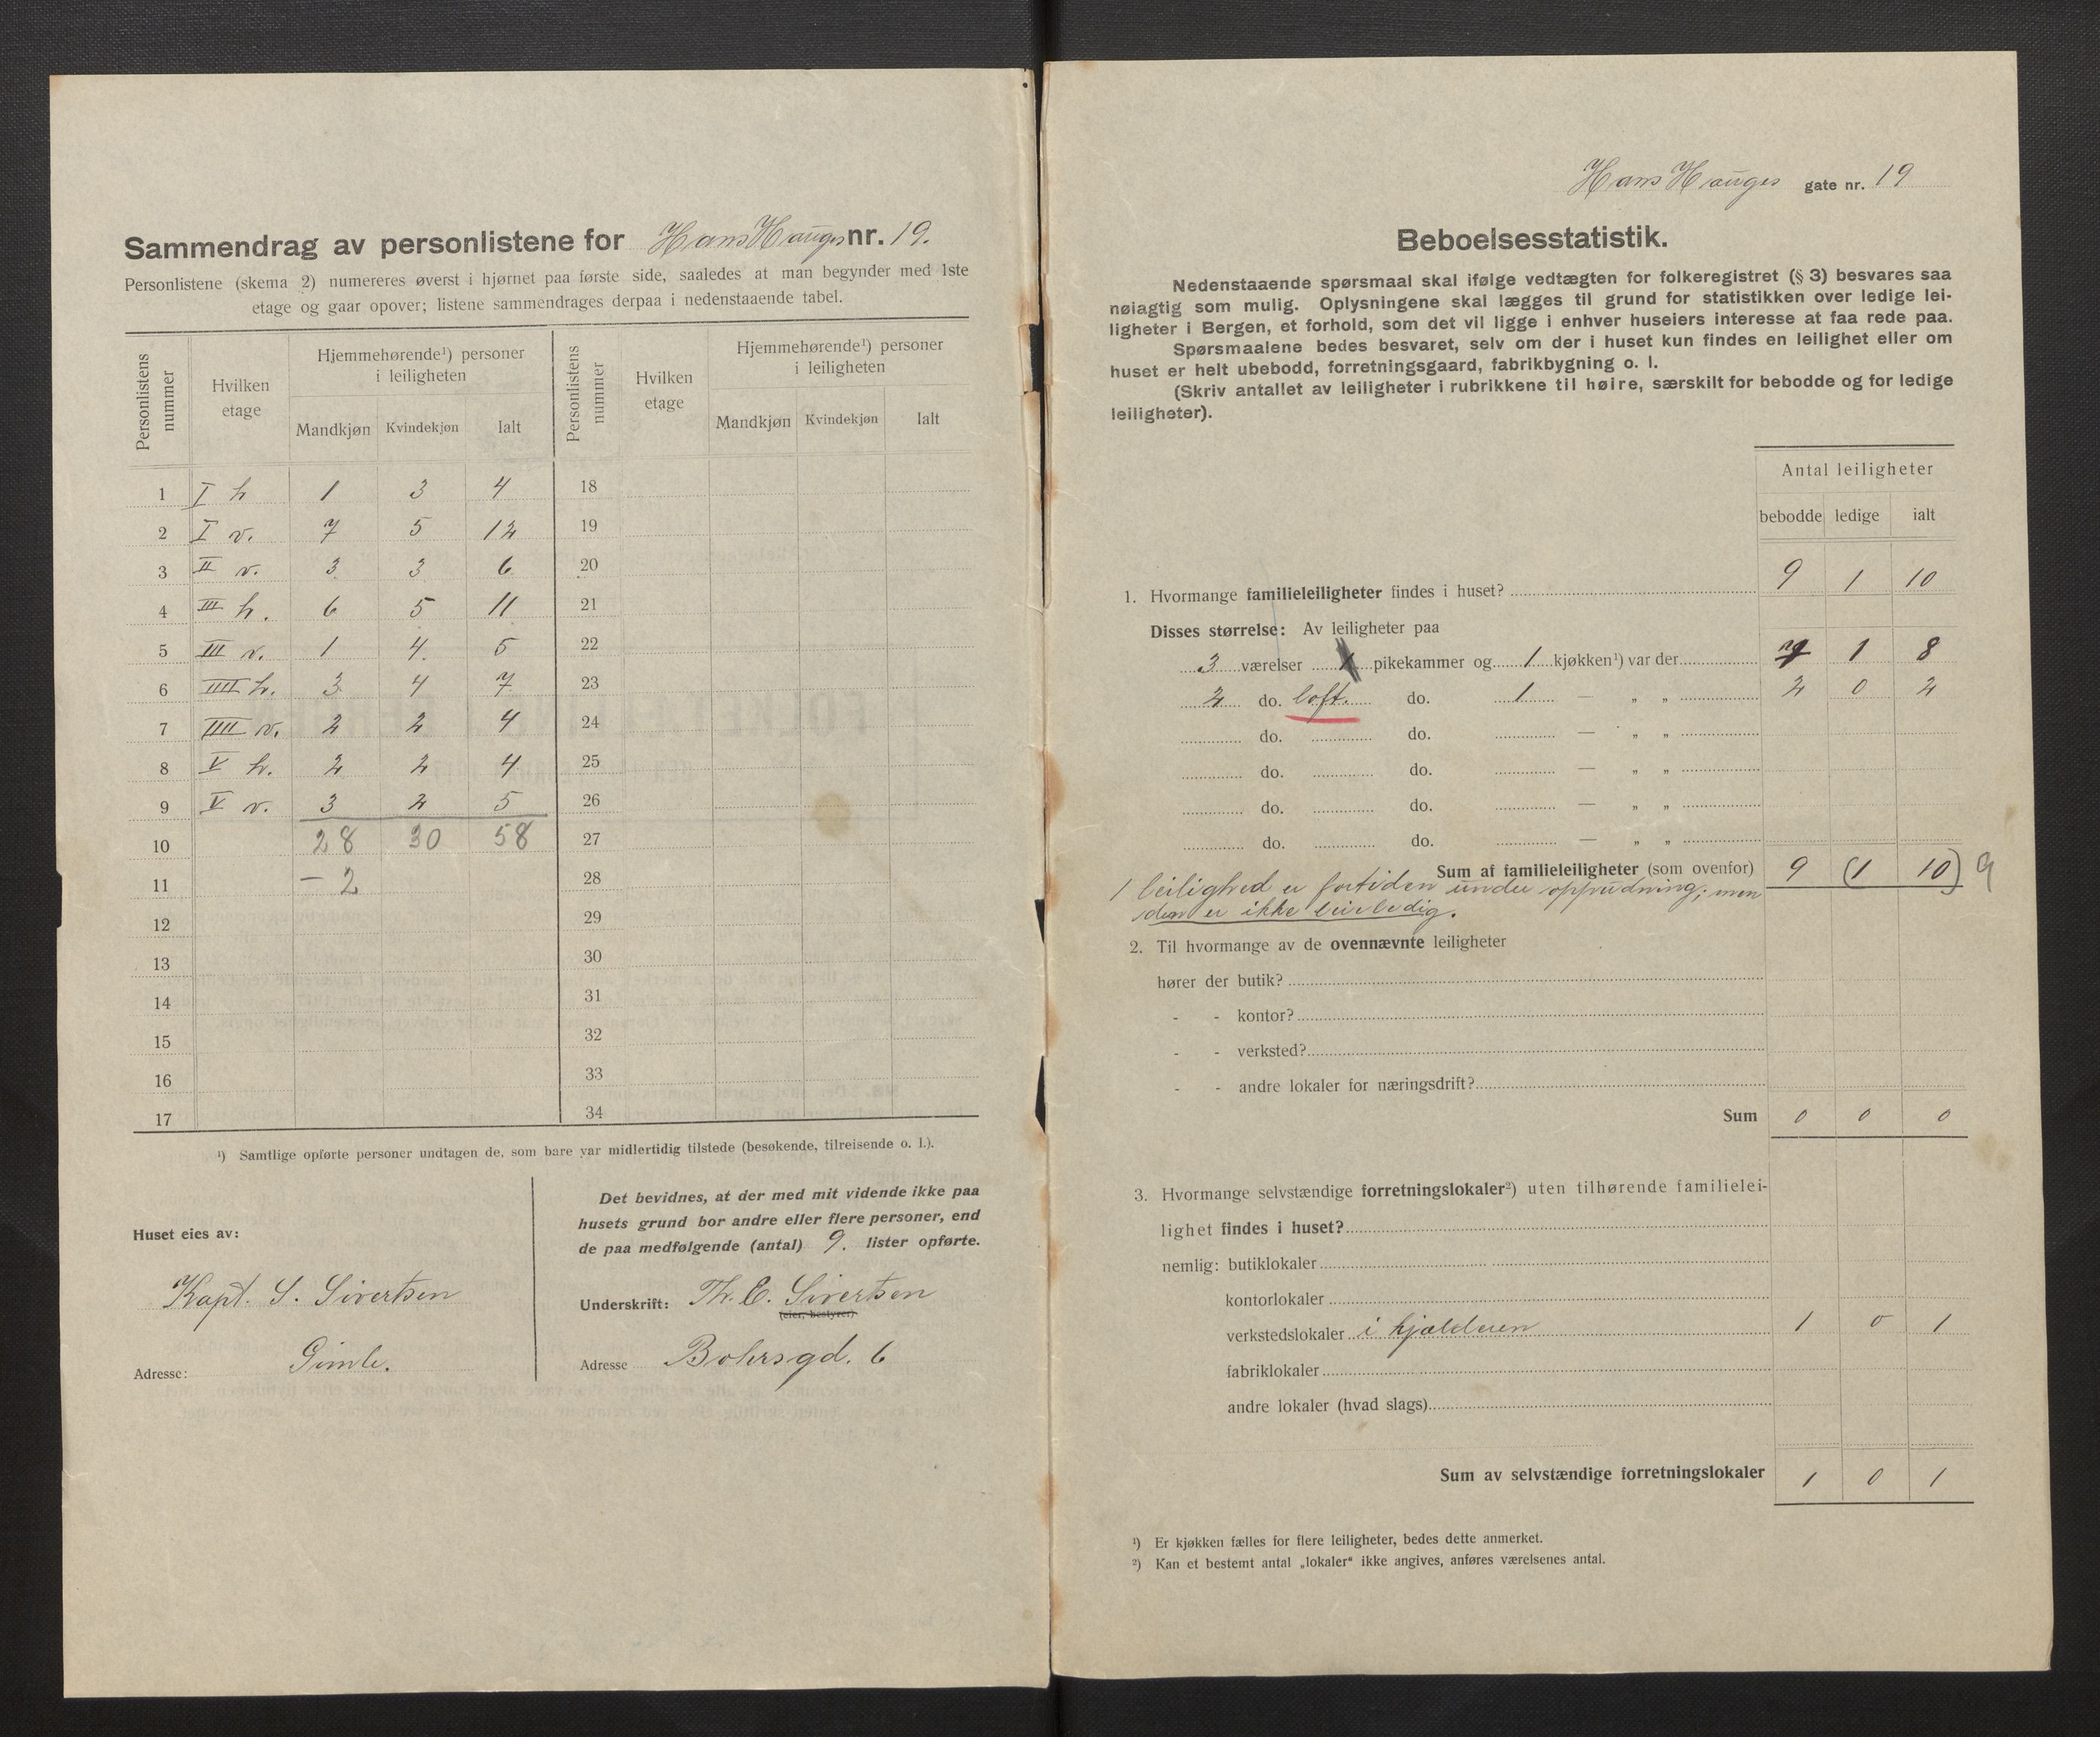 Sammendrag av personlistene for Hans Hauges nr. 19.
Personlistene (skema 2) numereres øverst i hjørnet paa første side, saaledes at man begynder med 1ste
etage og gaar opover; listene sammendrages derpaa i nedenstaaende tabel.
Personlistens nummer | Hvilken etage | Hjemmehørende¹) personer i leiligheten | Personlistens nummer | Hvilken etage | Hjemmehørende¹) personer i leiligheten
Mandkjøn | Kvindekjøn | Ialt | Mandkjøn | Kvindekjøn | Ialt
1 I h 1 3 4 18
2 I v. 7 5 12 19
3 II v. 3 3 6 20
4 III h. 6 5 11 21
5 III v. 1 4. 5 22
6 IIII h. 3 4 7 23
7 IIII v. 2 2 4 24
8 V h. 2 2 4 25
9 V v. 3 2 5 26
10 28 30 58 27
11 – 2 28
12 29
13 30
14 31
15 32
16 33
17 34
¹) Samtlige opførte personer undtagen de, som bare var midlertidig tilstede (besøkende, tilreisende o. l.).
Huset eies av:
Kapt. S. Sivertsen
Adresse: Gimle.
Det bevidnes, at der med mit vidende ikke paa
husets grund bor andre eller flere personer, end
de paa medfølgende (antal) 9. lister opførte.
Underskrift: Th. E. Sivertsen
(eier, bestyrer)
Adresse Bohrsgd. 6
Hans Hauges gate nr. 19
Beboelsesstatistik.
Nedenstaaende spørsmaal skal ifølge vedtægten for folkeregistret (§ 3) besvares saa
nøiagtig som mulig. Oplysningene skal lægges til grund for statistikken over ledige lei-
ligheter i Bergen, et forhold, som det vil ligge i enhver huseiers interesse at faa rede paa.
Spørsmaalene bedes besvaret, selv om der i huset kun findes en leilighet eller om
huset er helt ubebodd, forretningsgaard, fabrikbygning o. l.
(Skriv antallet av leiligheter i rubrikkene til høire, særskilt for bebodde og for ledige
leiligheter).
Antal leiligheter
bebodde | ledige | ialt
1. Hvormange familieleiligheter findes i huset? 9 1 10
Disses størrelse: Av leiligheter paa
3 værelser 1 pikekammer og 1 kjøkken¹) var der 7 1 8
2 do. loft. do. 1 — „ „ 2 0 2
do. do. — „ „
do. do. — „ „
do. do. — „ „
do. do. — „ „
Sum af familieleiligheter (som ovenfor) 9 (1 10) 9
1 leilighed er fortiden under oppudning; men
den er ikke leieledig.
2. Til hvormange av de ovennævnte leiligheter
hører der butik?
- - kontor?
- - verksted?
- - andre lokaler for næringsdrift?
Sum 0 0 0
3. Hvormange selvstændige forretningslokaler²) uten tilhørende familielei-
lighet findes i huset?
nemlig: butiklokaler
kontorlokaler
verkstedslokaler i kjælderen 1 0 1
fabriklokaler
andre lokaler (hvad slags)
Sum av selvstændige forretningslokaler 1 0 1
¹) Er kjøkken fælles for flere leiligheter, bedes dette anmerket.
²) Kan et bestemt antal „lokaler“ ikke angives, anføres værelsenes antal.